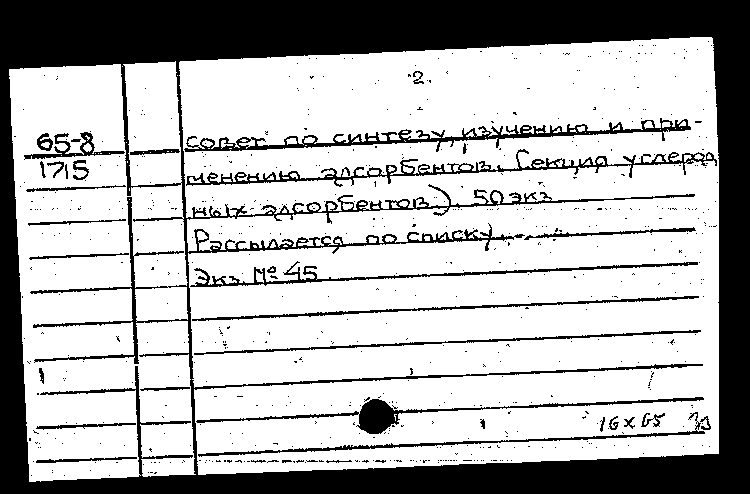 2.
65-8 совет по синтезу, изучению и при-
1715 менению адсорбентов. Секция углерод
ных адсорбентов). 50 экз
Рассылается по списку
Экз. № 45
16 X 65